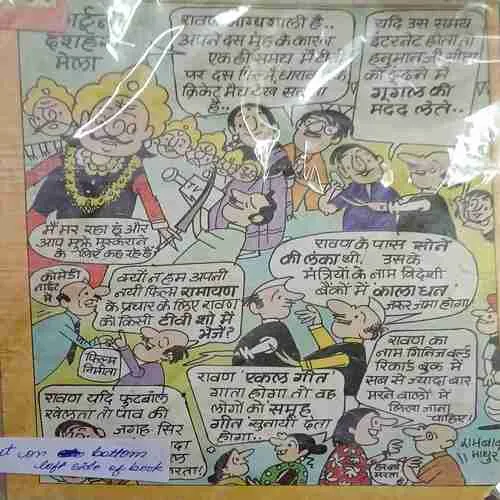 कार्टून
दशहरा
मेला
रावण भाग्यशाली है..
अपने दस मुंह के कारण
एक ही समय में टीवी
पर दस फिल्में, धारावाहिक
क्रिकेट मैच देख सकता
है..
यदि उस समय
इंटरनेट होता तो
हनुमान जी सीता
को ढूंढने में
गूगल की
मदद लेते..
मैं मर रहा हूं और
आप मुझे मुस्कराने
के लिए कह रहे हैं
कॉमेडी
नाईट
में
क्यों न हम अपनी
नयी फिल्म रामायण
के प्रचार के लिए रावण
को किसी टीवी शो में
भेजें?
फिल्म
निर्माता
रावण के पास सोने
की लंका थी, उसके
मंत्रियों के नाम विदेशी
बैंकों में काला धन
जरूर जमा होगा!
रावण का
नाम गिनिज वर्ल्ड
रिकार्ड बुक में
सब से ज्यादा बार
मरने वालों में
लिखा जाना
चाहिए!
रावण यदि फुटबॉल
खेलता तो पांव की
जगह सिर
रावण 'एकल गीत'
गाता होगा तो वह
लोगों को समूह
गीत सुनायी देता
होगा..
on bottom
left side of book